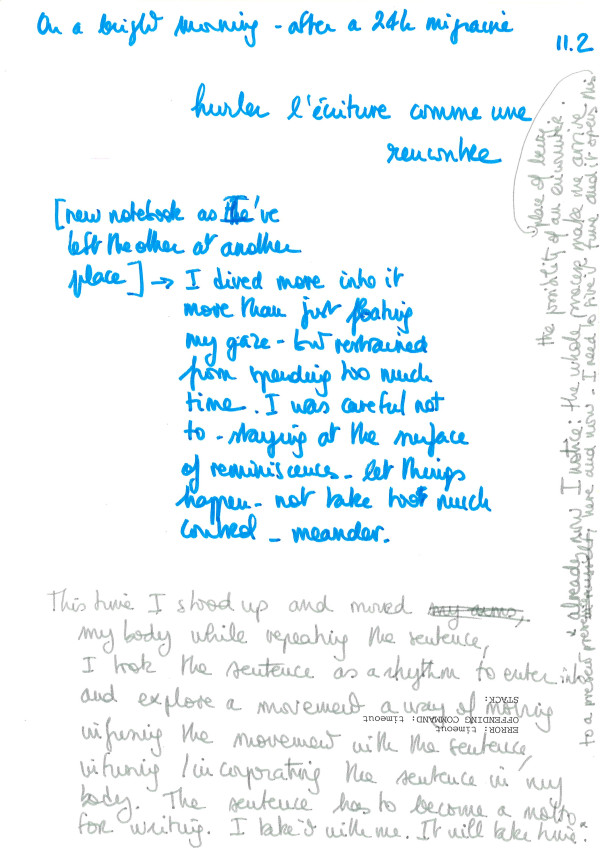 On a bright morning - after a 24h migraine
11.2
hurler l'écriture comme une
rencontre
[new notebook as I've
left the other at another
place] → I dived more into it
more than just floating
my gaze - but restrained
from spending too much
time. I was careful not
to - staying at the surface
of reminiscences - let things
happen - not take too much
control - meander.
This time I stood up and moved my arms,
my body while repeating the sentence,
I took the sentence as a rhythm to enter into
and explore a movement a way of moving
infusing the movement with the sentence,
infusing / incorporating the sentence in my
body. The sentence has to become a motto
for writing. I take it with me. It will take time.*
ERROR: timeout
OFFENDING COMMAND: timeout
STACK:
* already now I notice: the whole process make me arrive
to a present present, here and now - I need to give it time and it opens this
place of being.
the possibility of an encounter.